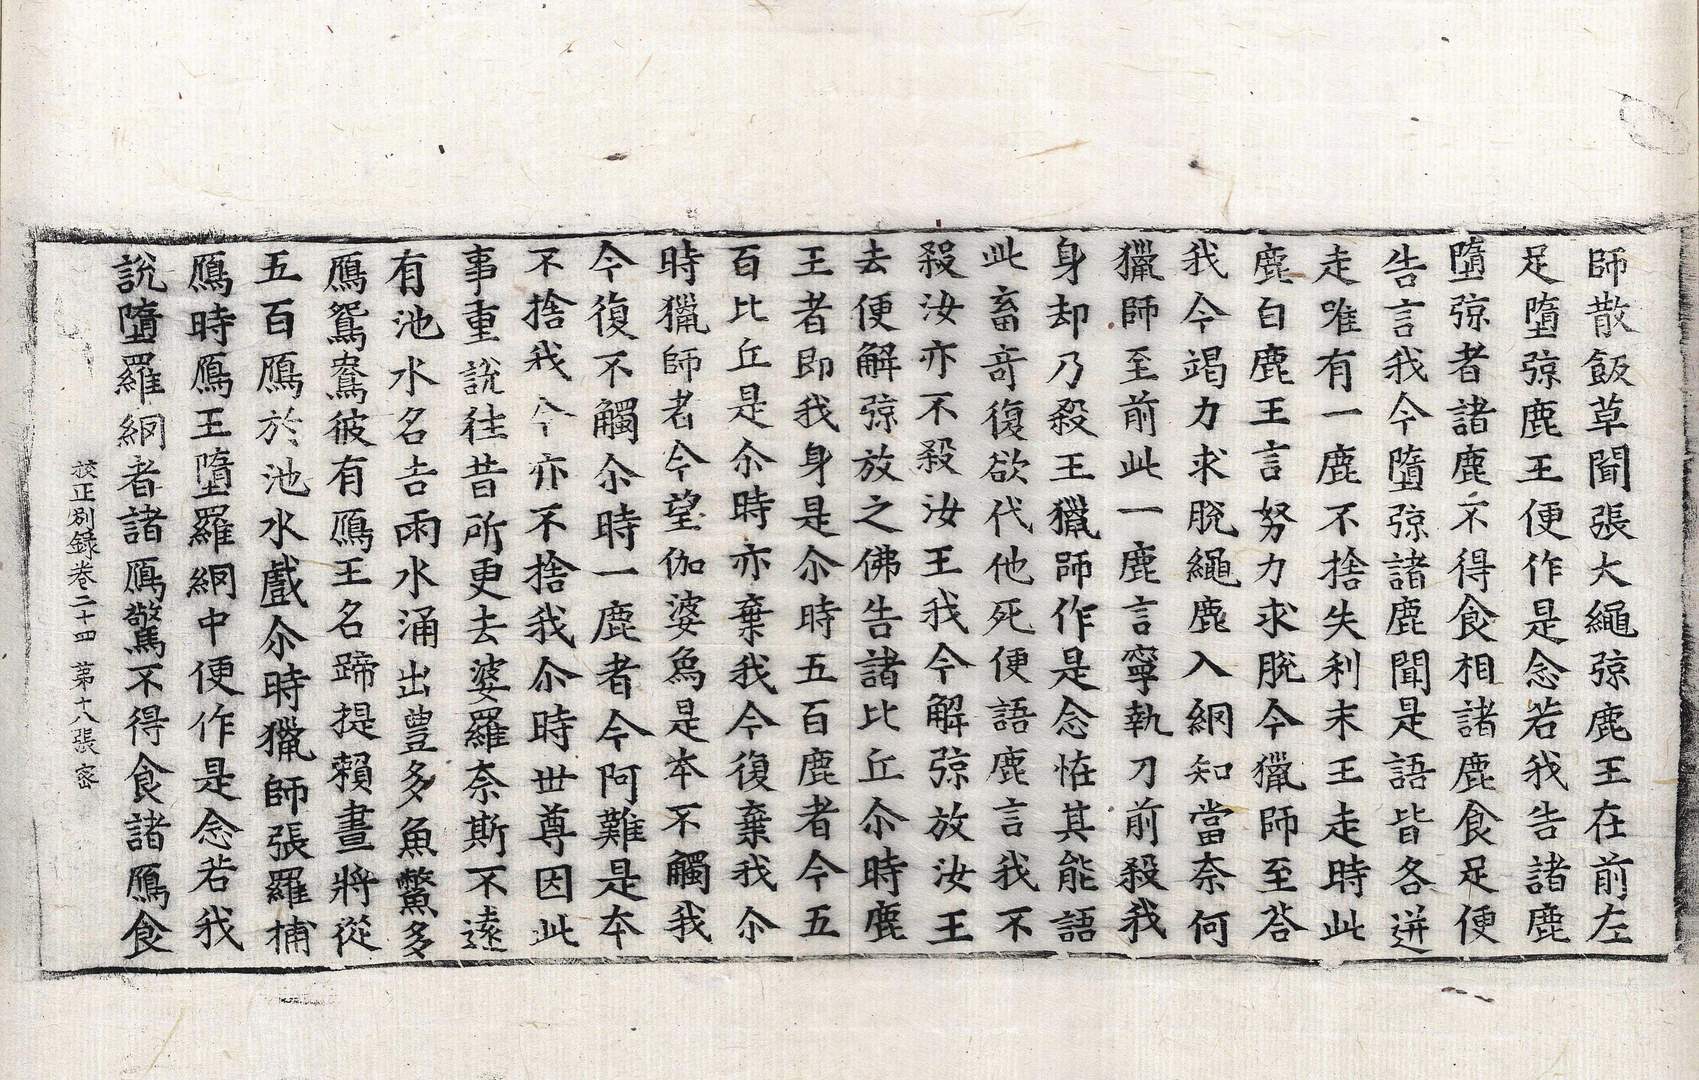 師散飯草閒張大繩弶鹿王在前左
足墮弶鹿王便作是念若我告諸鹿
墮弶者諸鹿不得食相諸鹿食足便
告言我今墮弶諸鹿聞是語皆各迸
走唯有一鹿不捨失利末王走時此
鹿白鹿王言努力求脫今獵師至荅
我今竭力求脫繩鹿入網知當奈何
獵師至前此一鹿言寧執刀前殺我
身却乃殺王獵師作是念恠其能語
此畜奇復欲代他死便語鹿言我不
殺汝亦不殺汝王我今解弶放汝王
去便解弶放之佛告諸比丘尒時鹿
王者即我身是尒時五百鹿者今五
百比丘是尒時亦棄我今復棄我尒
時獵師者今望伽婆㝹是本不觸我
今復不觸尒時一鹿者今阿難是本
不捨我今亦不捨我尒時世尊因此
事重說往昔所更去婆羅奈斯不遠
有池水名吉雨水涌出豊多魚鱉多
鴈鴛鴦彼有鴈王名蹄提賴晝將從
五百鴈於池水戲尒時獵師張羅捕
鴈時鴈王墮羅網中便作是念若我
說墮羅網者諸鴈驚不得食諸鴈食
校正別録卷二十四 第十八張 宻